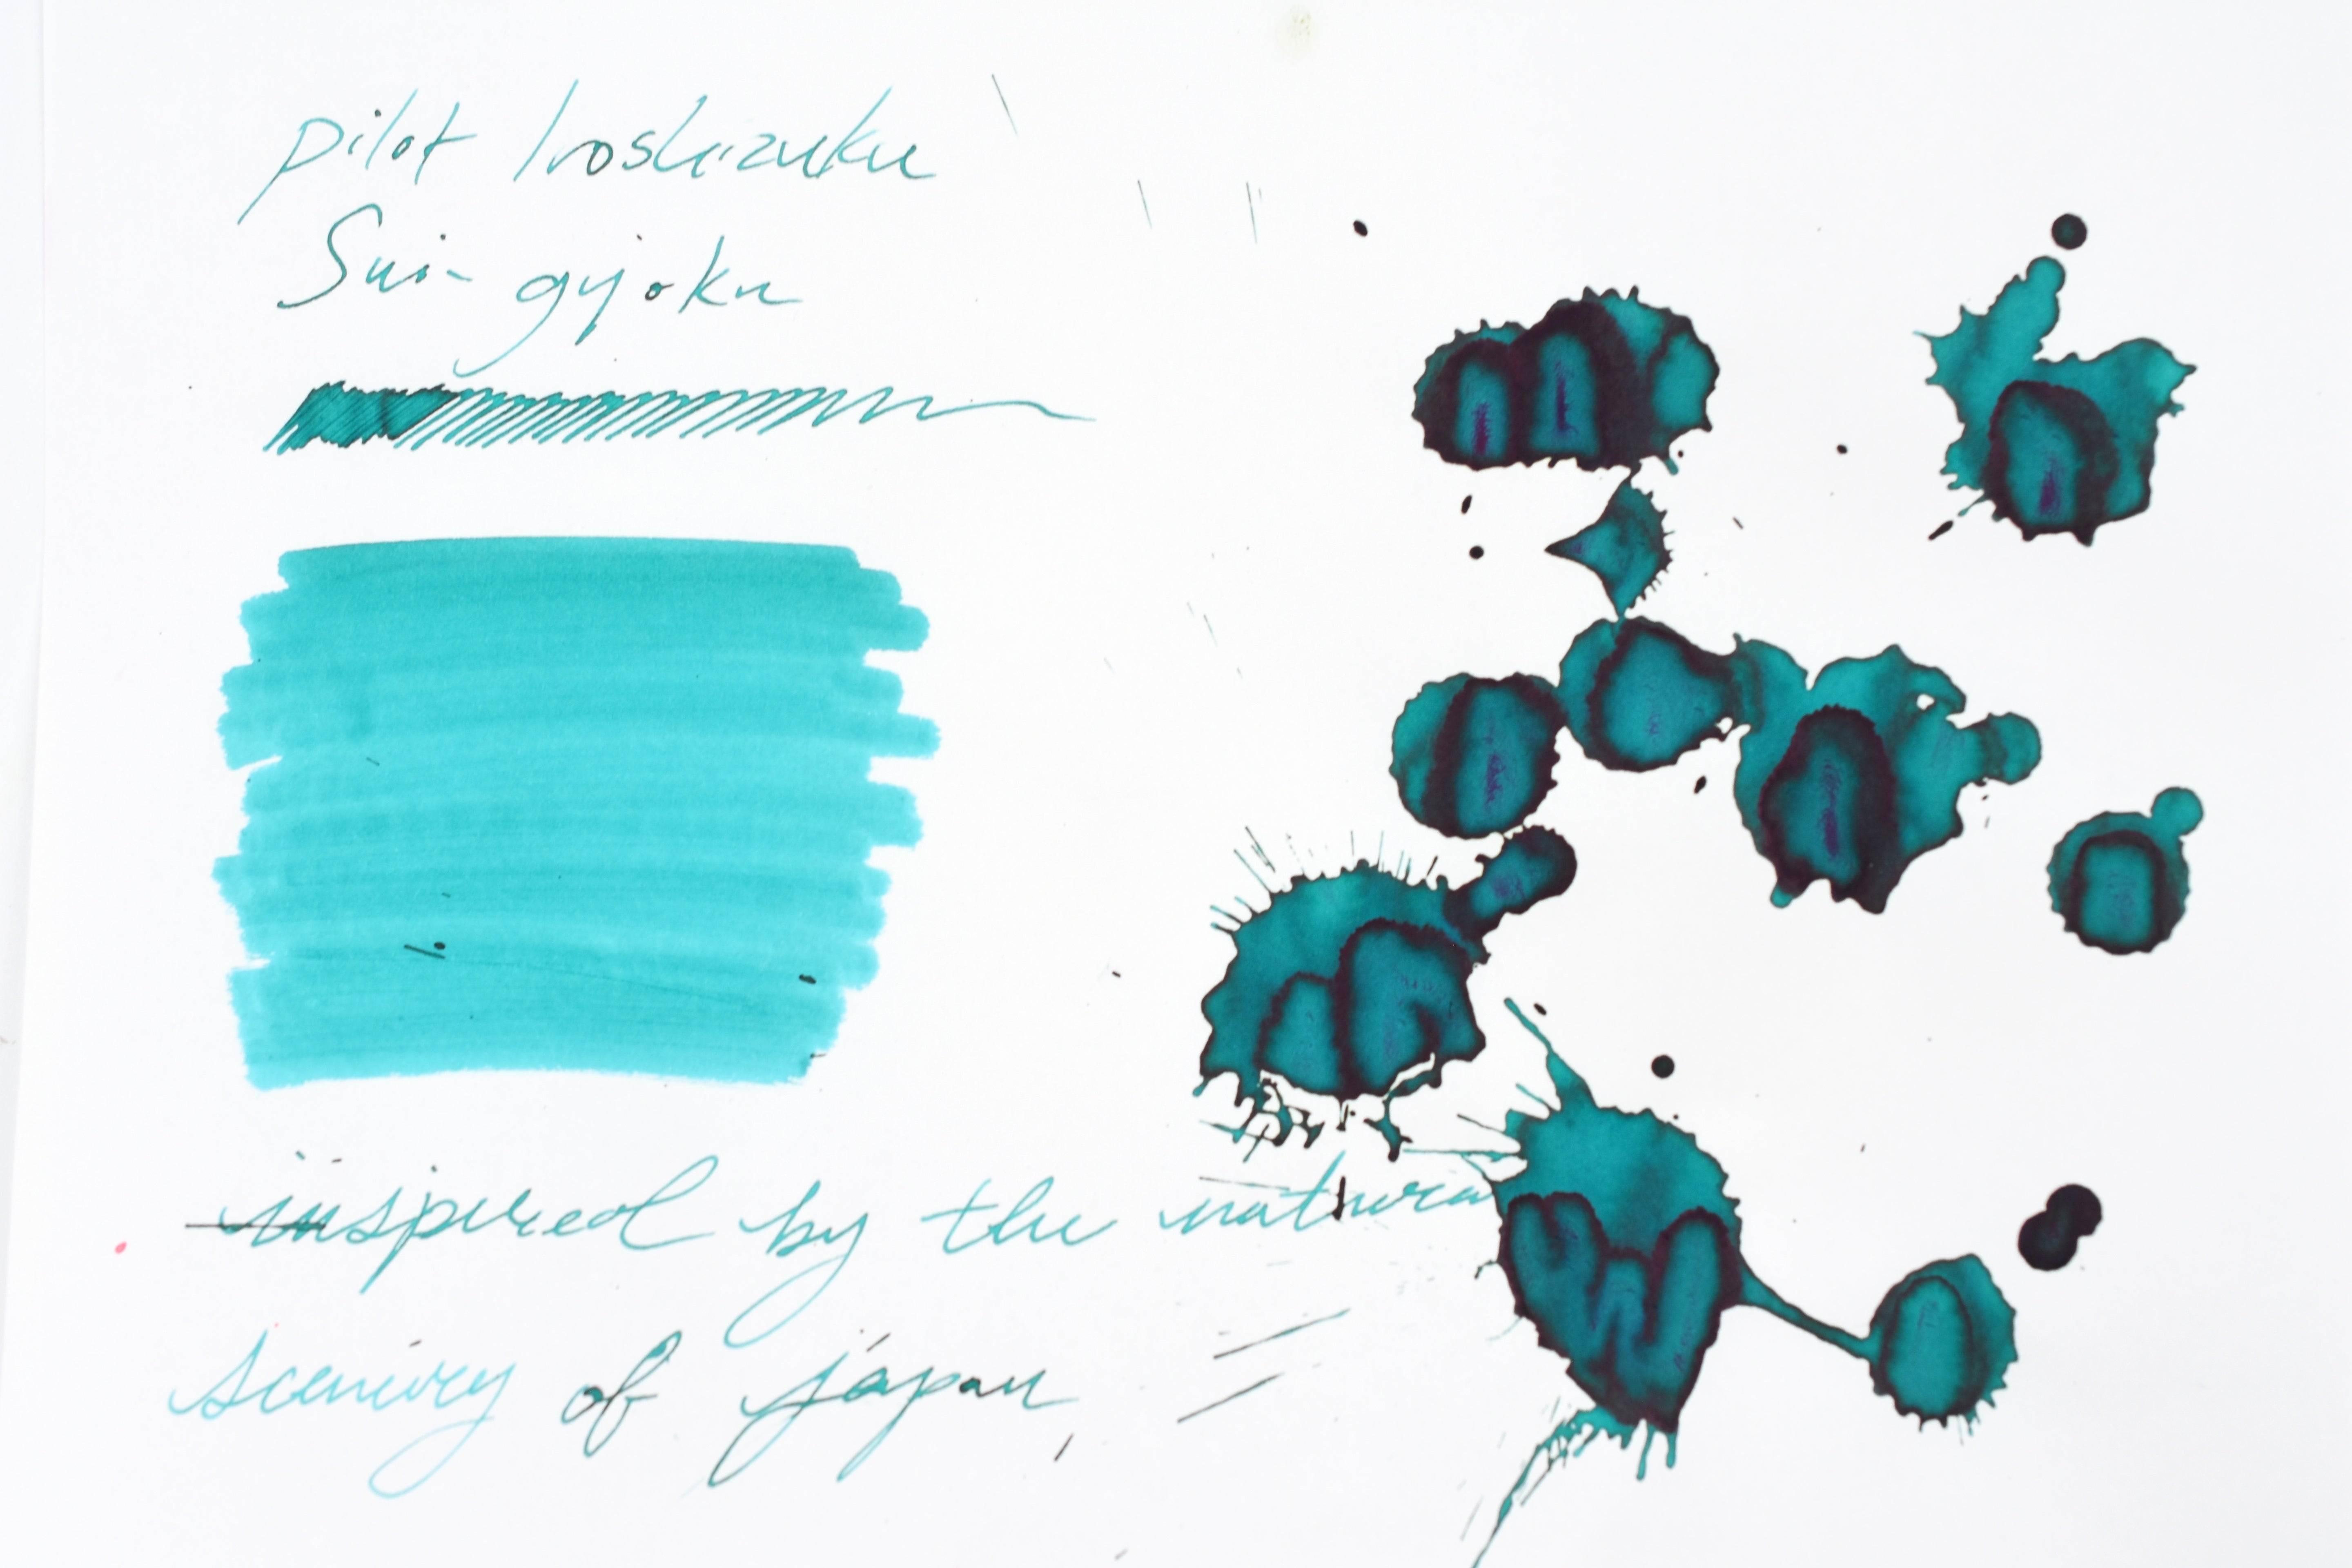 pilot Iroshizuku
Sui-gyoku
inspired by the natural
scenery of japan